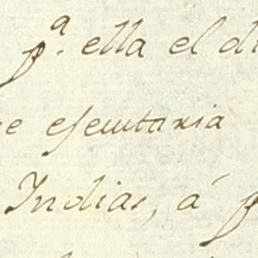 pª. ella el d
e esecutaria
Indias, á p